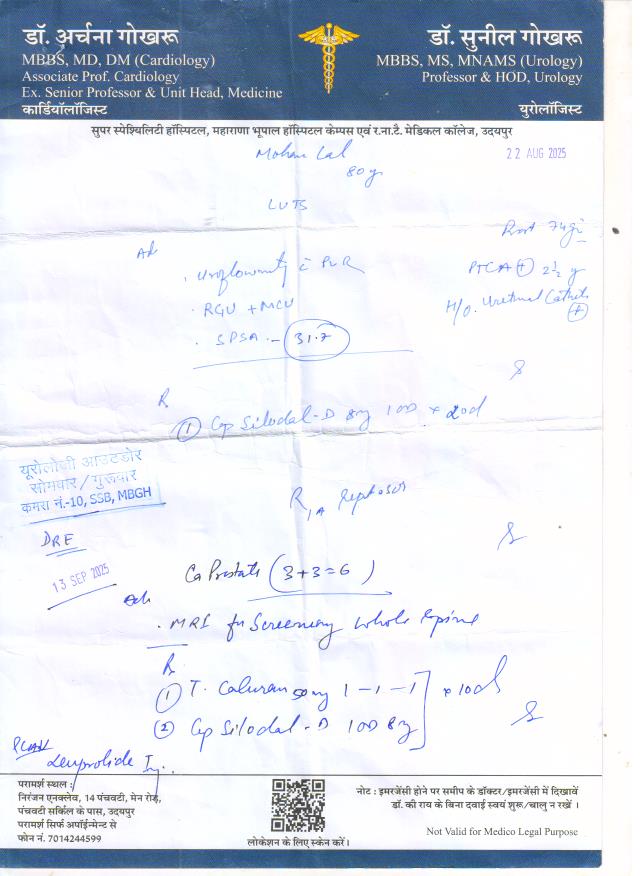 डॉ. अर्चना गोखरू
MBBS, MD, DM (Cardiology)
Associate Prof. Cardiology
Ex. Senior Professor & Unit Head, Medicine
कार्डियॉलॉजिस्ट
डॉ. सुनील गोखरू
MBBS, MS, MNAMS (Urology)
Professor & HOD, Urology
युरोलॉजिस्ट
सुपर स्पेश्यिलिटी हॉस्पिटल, महाराणा भूपाल हॉस्पिटल केम्पस एवं र.ना.टै. मेडिकल कॉलेज, उदयपुर
Mohan Lal
80y
22 AUG 2025
LUTS
Prost 74g
Ad
. Uroflowmetry c PVR
PTCA (+) 2½ y
. RGU + MCU
H/o. Urethral Catheter
(+)
. SPSA - 31.7
R
① Cap Silodal-D 8mg 1OD x 20d
यूरोलोजी आउटडोर
सोमवार / गुरूवार
कमरा नं.-10, SSB, MBGH
DRE
13 SEP 2025
Ca Prostate (3+3=6)
Adv
. MRI for Screening Whole Spine
R
① T. Caluran 50mg 1-1-1
x 10d
② Cap Silodal-D 1OD 8mg
PLAN
Leuprolide Inj.
परामर्श स्थल :
निरंजन एनक्लेव, 14 पंचवटी, मेन रोड़,
पंचवटी सर्किल के पास, उदयपुर
परामर्श सिर्फ अपॉईन्मेन्ट से
फोन नं. 7014244599
लोकेशन के लिए स्केन करें।
नोट : इमरजेंसी होने पर समीप के डॉक्टर/इमरजेंसी में दिखावें
डॉ. की राय के बिना दवाई स्वयं शुरू/चालु न रखें ।
Not Valid for Medico Legal Purpose